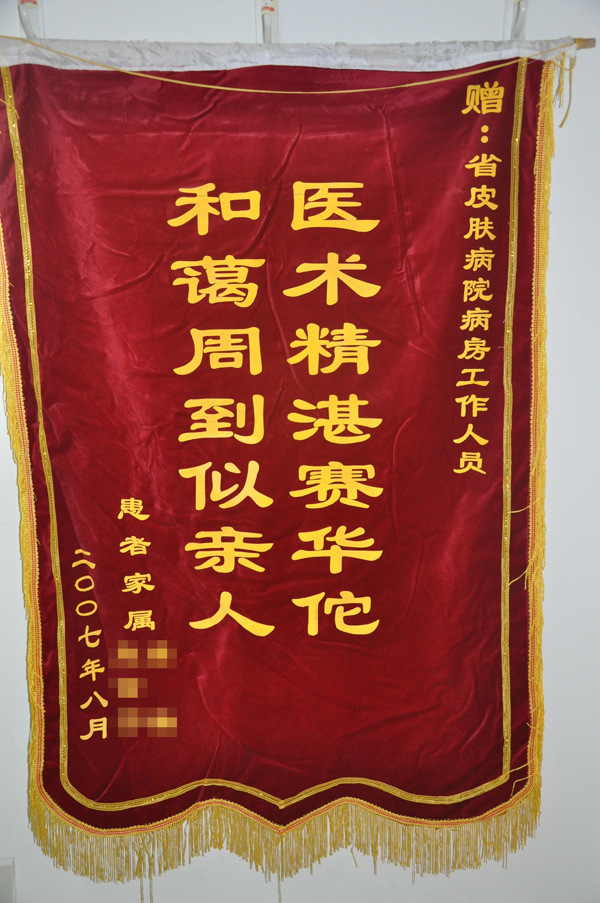 赠：省皮肤病院病房工作人员
医术精湛赛华佗
和蔼周到似亲人
患者家属
二〇〇七年八月